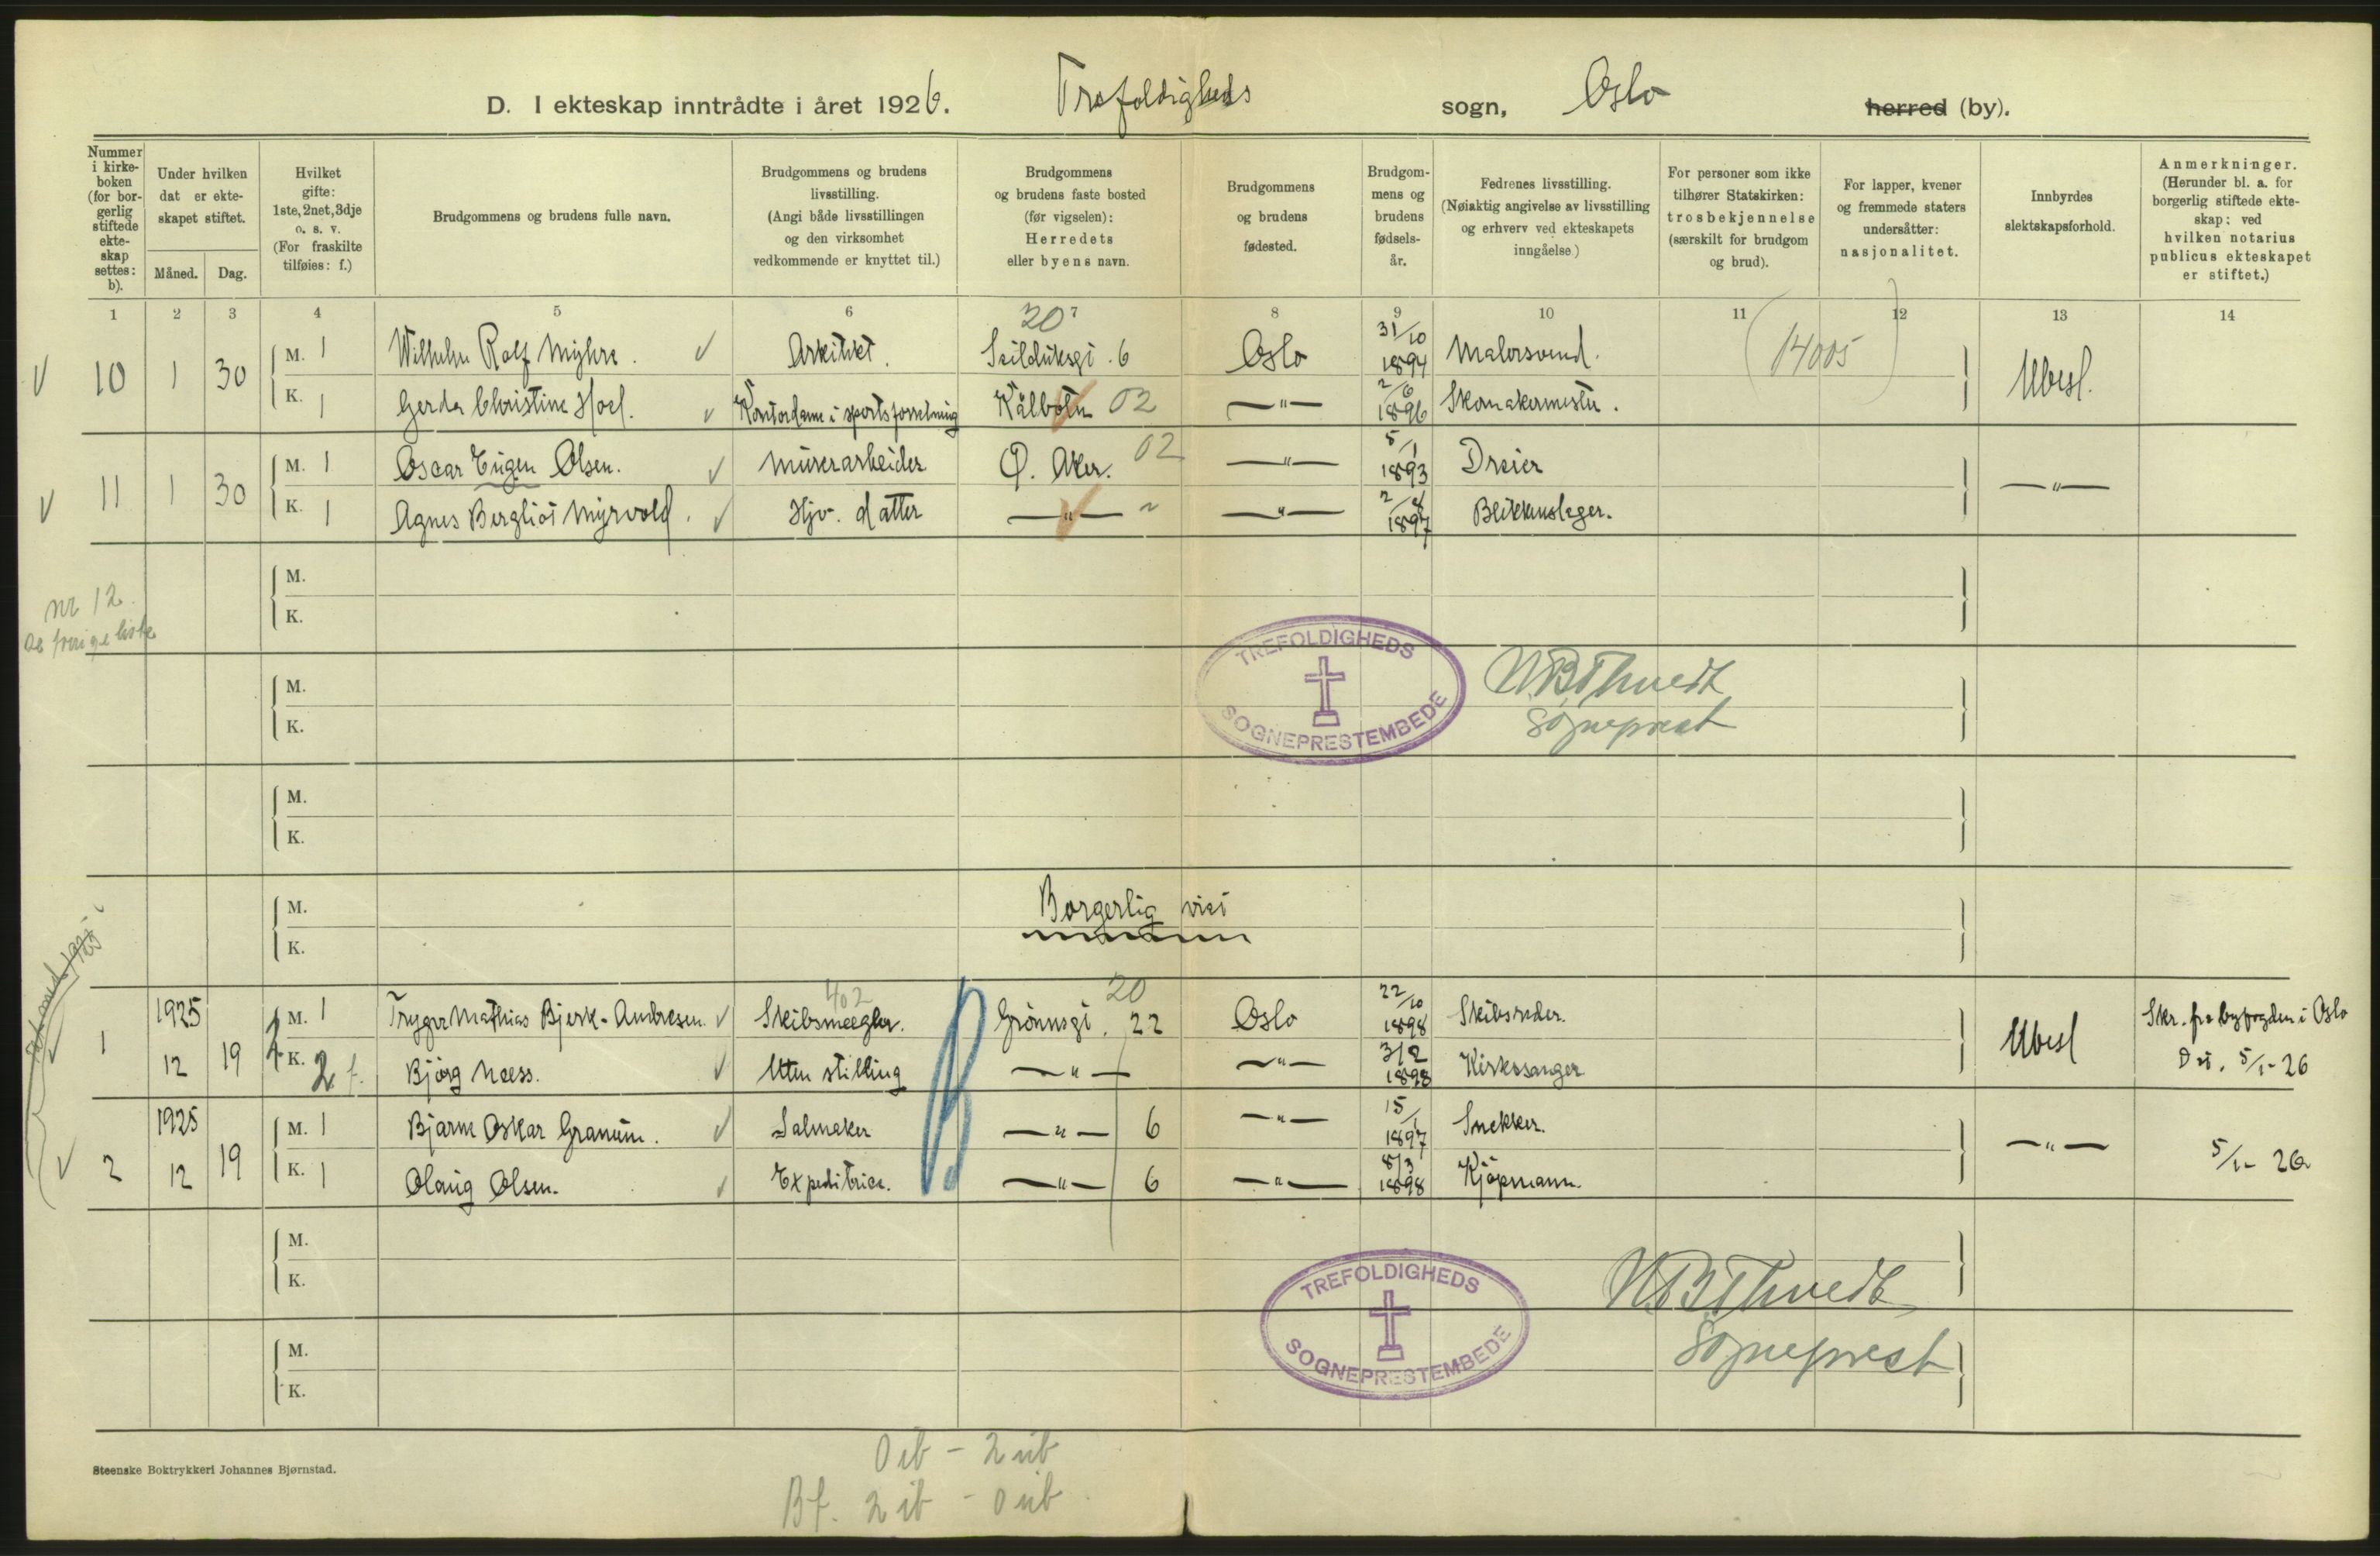 D. I ekteskap inntrådte i året 1926. Trefoldigheds sogn, Oslo herred (by).
Nummer i kirke-boken (for bor-gerlig stiftede ekte-skap settes: b).
Under hvilken dat er ekte-skapet stiftet.
Måned. Dag.
Hvilket gifte: 1ste, 2net, 3dje o. s. v. (For fraskilte tilføies: f.)
Brudgommens og brudens fulle navn.
Brudgommens og brudens livsstilling. (Angi både livsstillingen og den virksomhet vedkommende er knyttet til.)
Brudgommens og brudens faste bosted (før vigselen): Herredets eller byens navn.
Brudgommens og brudens fødested.
Brudgom-mens og brudens fødsels-år.
Fedrenes livsstilling. (Nøiaktig angivelse av livsstilling og erhverv ved ekteskapets inngåelse)
For personer som ikke tilhører Statskirken: trosbekjennelse (særskilt for brudgom og brud).
For lapper, kvener og fremmede staters undersåtter: nasjonalitet.
Innbyrdes slektskapsforhold.
Anmerkninger. (Herunder bl. a. for borgerlig stiftede ekte-skap: ved hvilken notarius publicus ekteskapet er stiftet.)
1 2 3 4 5 6 7 8 9 10 11 12 13 14
20
10 1 30 M. 1 Wilhelm Rolf Myhre. Arkitekt. Seilduksgt. 6 Oslo 31/10 1894 Malersvend. (14005) Ubesl.
K. 1 Gerda Christine Hoel. Kontordame i sportsforretning Kålbotn 02 —"— 2/6 1896 Skomakermester.
11 1 30 M. 1 Oscar Eugen Olsen. Murerarbeider Ø. Aker. 02 —"— 5/1 1893 Dreier —"—
K. 1 Agnes Bergliot Myrvold. Hjv. datter —"— " —"— 2/8 1897 Blikkenslager.
M.
K.
nr 12
M.
K.
TREFOLDIGHEDS SOGNEPRESTEMBEDE
Sogneprest
M.
K.
M.
K.
Borgerlig viet
1 1925 12 19 M. 1 Trygve Mathias Bjerk-Andresen. 402 Skibsmægler. Grønnegt. 22 20 Oslo 22/10 1898 Skibsreder. Ubesl Skr. fra byfogden i Oslo
K. 2 f. Bjørg Næss. Uten stilling —"— —"— 3/2 1898 Kirkesanger Dat. 5/1-26
2 1925 12 19 M. 1 Bjarne Oskar Granum. Salmaker —"— 6 —"— 15/1 1897 Snekker. —"— 5/1-26
K. 1 Olaug Olsen. Expeditrice. —"— 6 —"— 8/3 1898 Kjøpmann.
M.
K.
TREFOLDIGHEDS SOGNEPRESTEMBEDE
Sogneprest
M.
K.
Steenske Boktrykkeri Johannes Bjørnstad.
0 ib - 2 uib
Bf. 2 ib - 0 uib